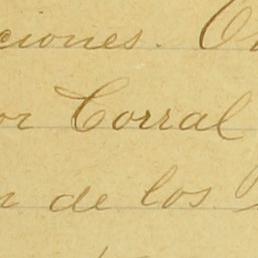 ciones.
or Corral
de los